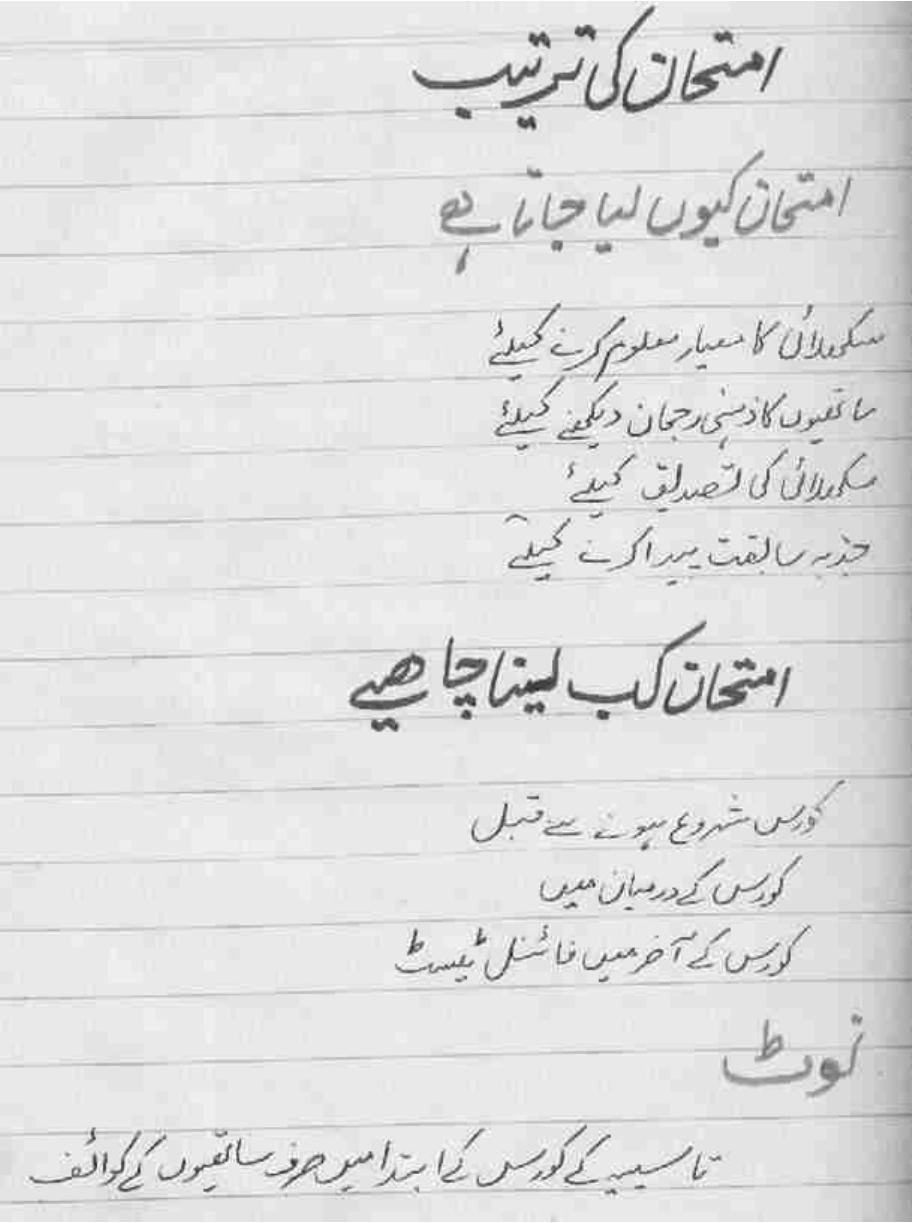 امتحان کی ترتیب
امتحان کیوں لیا جاتا ہے
سکھلائی کا معیار معلوم کرنے کیلئے
ساتھیوں کا ذہنی رجحان دیکھنے کیلئے
سکھلائی کی تصدیق کیلئے
جذبہ سابقت پیدا کرنے کیلئے
امتحان کب لینا چاھیے
کورس شروع ہونے سے قبل
کورس کے درمیان میں
کورس کے آخر میں فائنل ٹیسٹ
نوٹ
تاسیسیہ کے کورس کے ابتدا میں صرف ساتھیوں کے کوائف